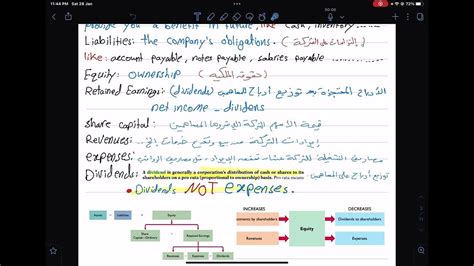 11:44 PM Sat 28 Jan
00:00
72%
provide you a benefit in future, like cash, inventory ......
Liabilities: the company's obligations. (التزامات على الشركة)
like: account payable, notes payable, salaries payable ..........
Equity: ownership (حقوق الملكية)
Retained Earnings: (dividends) الأرباح المحتجزة بعد توزيع أرباح المساهمين
net income - dividens
share capital: قيمة الأسهم
Revenues: إيرادات الشركة من بيع وتقديم خدمات إلخ..
expenses: مصاريف التشغيلية للشركة
Dividends: A dividend is generally a corporation's distribution of cash or shares to its توزيع أرباح على المساهمين
shareholders on a pro rata (proportional to ownership) basis. Pro rata means
• Dividends NOT expenses.
INCREASES DECREASES
Assets = Liabilities + Equity
Investments by shareholders Dividends to shareholders
Equity
Share Capital—Ordinary Retained Earnings
Revenues Expenses
Revenues Expenses Dividends